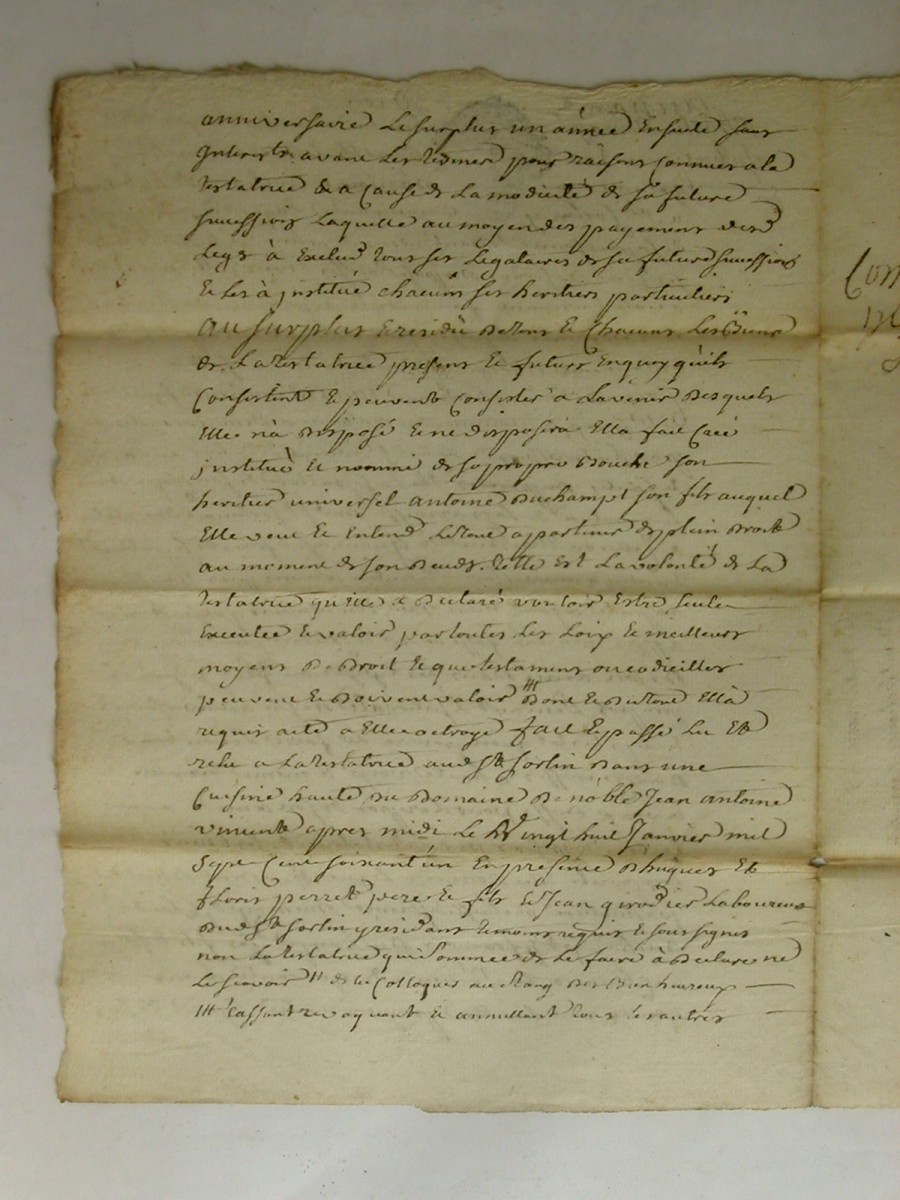 anniversaire Le surplus un année Ensuite sans
Interests avant Les termes pour raisons Connues a la
testatrice & a Cause de La modicité de sa future
succession Laquelle au moyen des payements desd
Legs à Exclud tous ses Legataires de sa future succession
Et Les à institué chacuns ses heritiers particuliers
au surplus & residu De tous Et Chacuns Les Biens
de La testatrice presens Et futurs En quoy qu'ils
Consistent Et peuvent Consister a Lavenir Desquels
Elle n'à Disposé Et ne disposera Ella fait Créé
institué Et nommé de sa propre Bouche son
heritier universel antoine Duchampt son fils auquel
Elle veut Et Entend Le tout appartenir de plein Droit
au moment de son Deces. telle Est La volonté de La
testatrice qu'Elle a Declaré vouloir Estre seule
Executée Et valoir par toutes Les Loix Et meilleurs
moyens De Droit Et que testament ou codicilles
peuvent Et Doivent valoir # Dont Et Du tout Ellà
requis acte a Elle octroyé fait Et passé Lu Et
relu a La testatrice aud St sorlin Dans une
Cuisine haute Du Domaine De noble Jean antoine
vincent apres midi Le Vingt huit Janvier mil
Sept Cent soixant'un En presence D'hugues Et
fLoris perret pere Et fils Et Jean girodier Laboureurs
Dud St sorlin y residants temoins requis Et soussignes
non La testatrice qui sommée de Le faire à Declaré ne
Le scavoir # de la Colloquer au Rang Des Bien heureux
# Cassant revoquant Et annullant tous les autres
Com